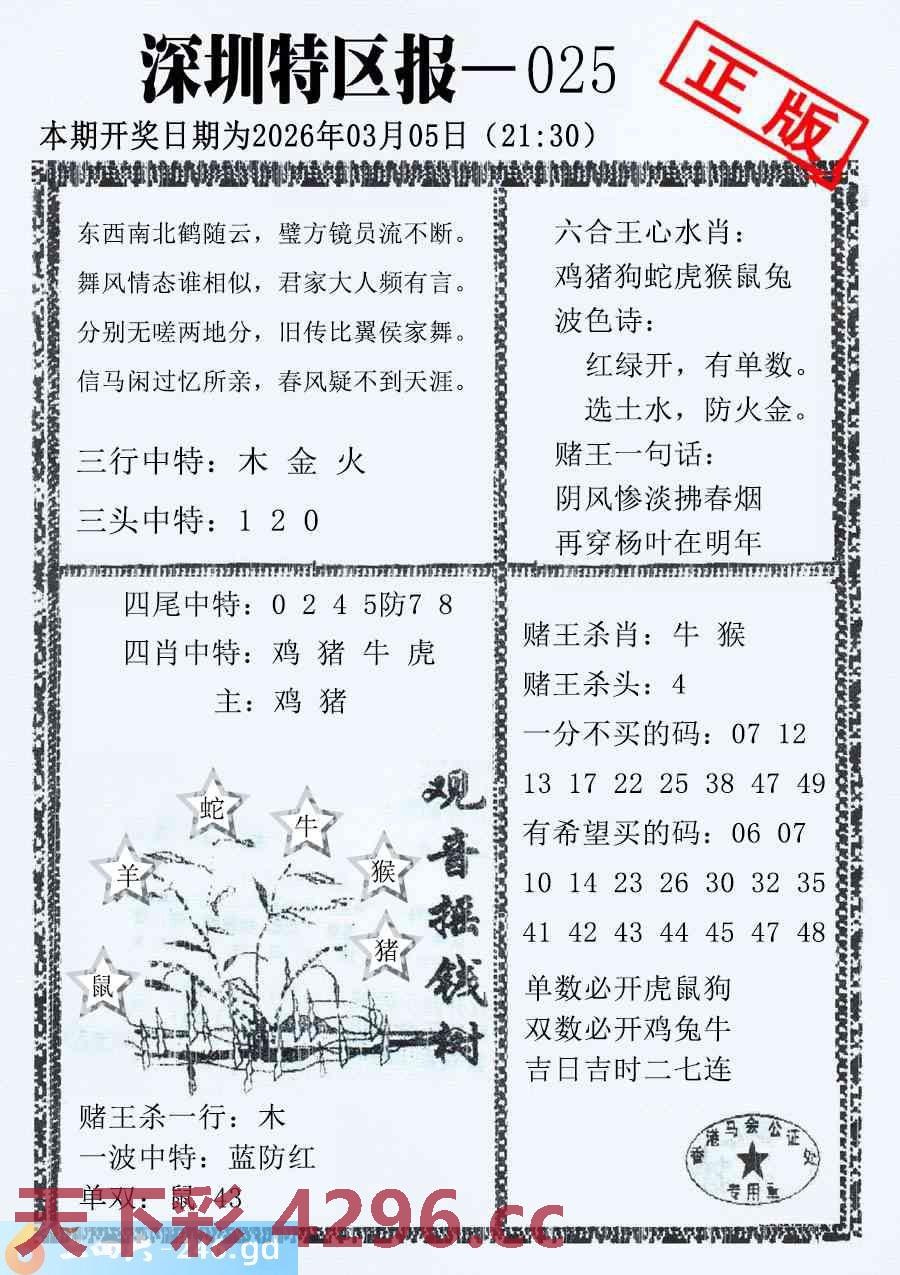 深圳特区报—025
正版
本期开奖日期为2026年03月05日（21:30）
东西南北鹤随云，璧方镜员流不断。
舞风情态谁相似，君家大人频有言。
分别无嗟两地分，旧传比翼侯家舞。
信马闲过忆所亲，春风疑不到天涯。
三行中特：木 金 火
三头中特：1 2 0
六合王心水肖：
鸡猪狗蛇虎猴鼠兔
波色诗：
红绿开，有单数。
选土水，防火金。
赌王一句话：
阴风惨淡拂春烟
再穿杨叶在明年
四尾中特：0 2 4 5防7 8
四肖中特：鸡 猪 牛 虎
主：鸡 猪
观音摇钱树
蛇
牛
羊
猴
猪
鼠
赌王杀一行：木
一波中特：蓝防红
单双：鼠 43
赌王杀肖：牛 猴
赌王杀头：4
一分不买的码：07 12
13 17 22 25 38 47 49
有希望买的码：06 07
10 14 23 26 30 32 35
41 42 43 44 45 47 48
单数必开虎鼠狗
双数必开鸡兔牛
吉日吉时二七连
香港马会公证处
专用章
天下彩 4296.cc